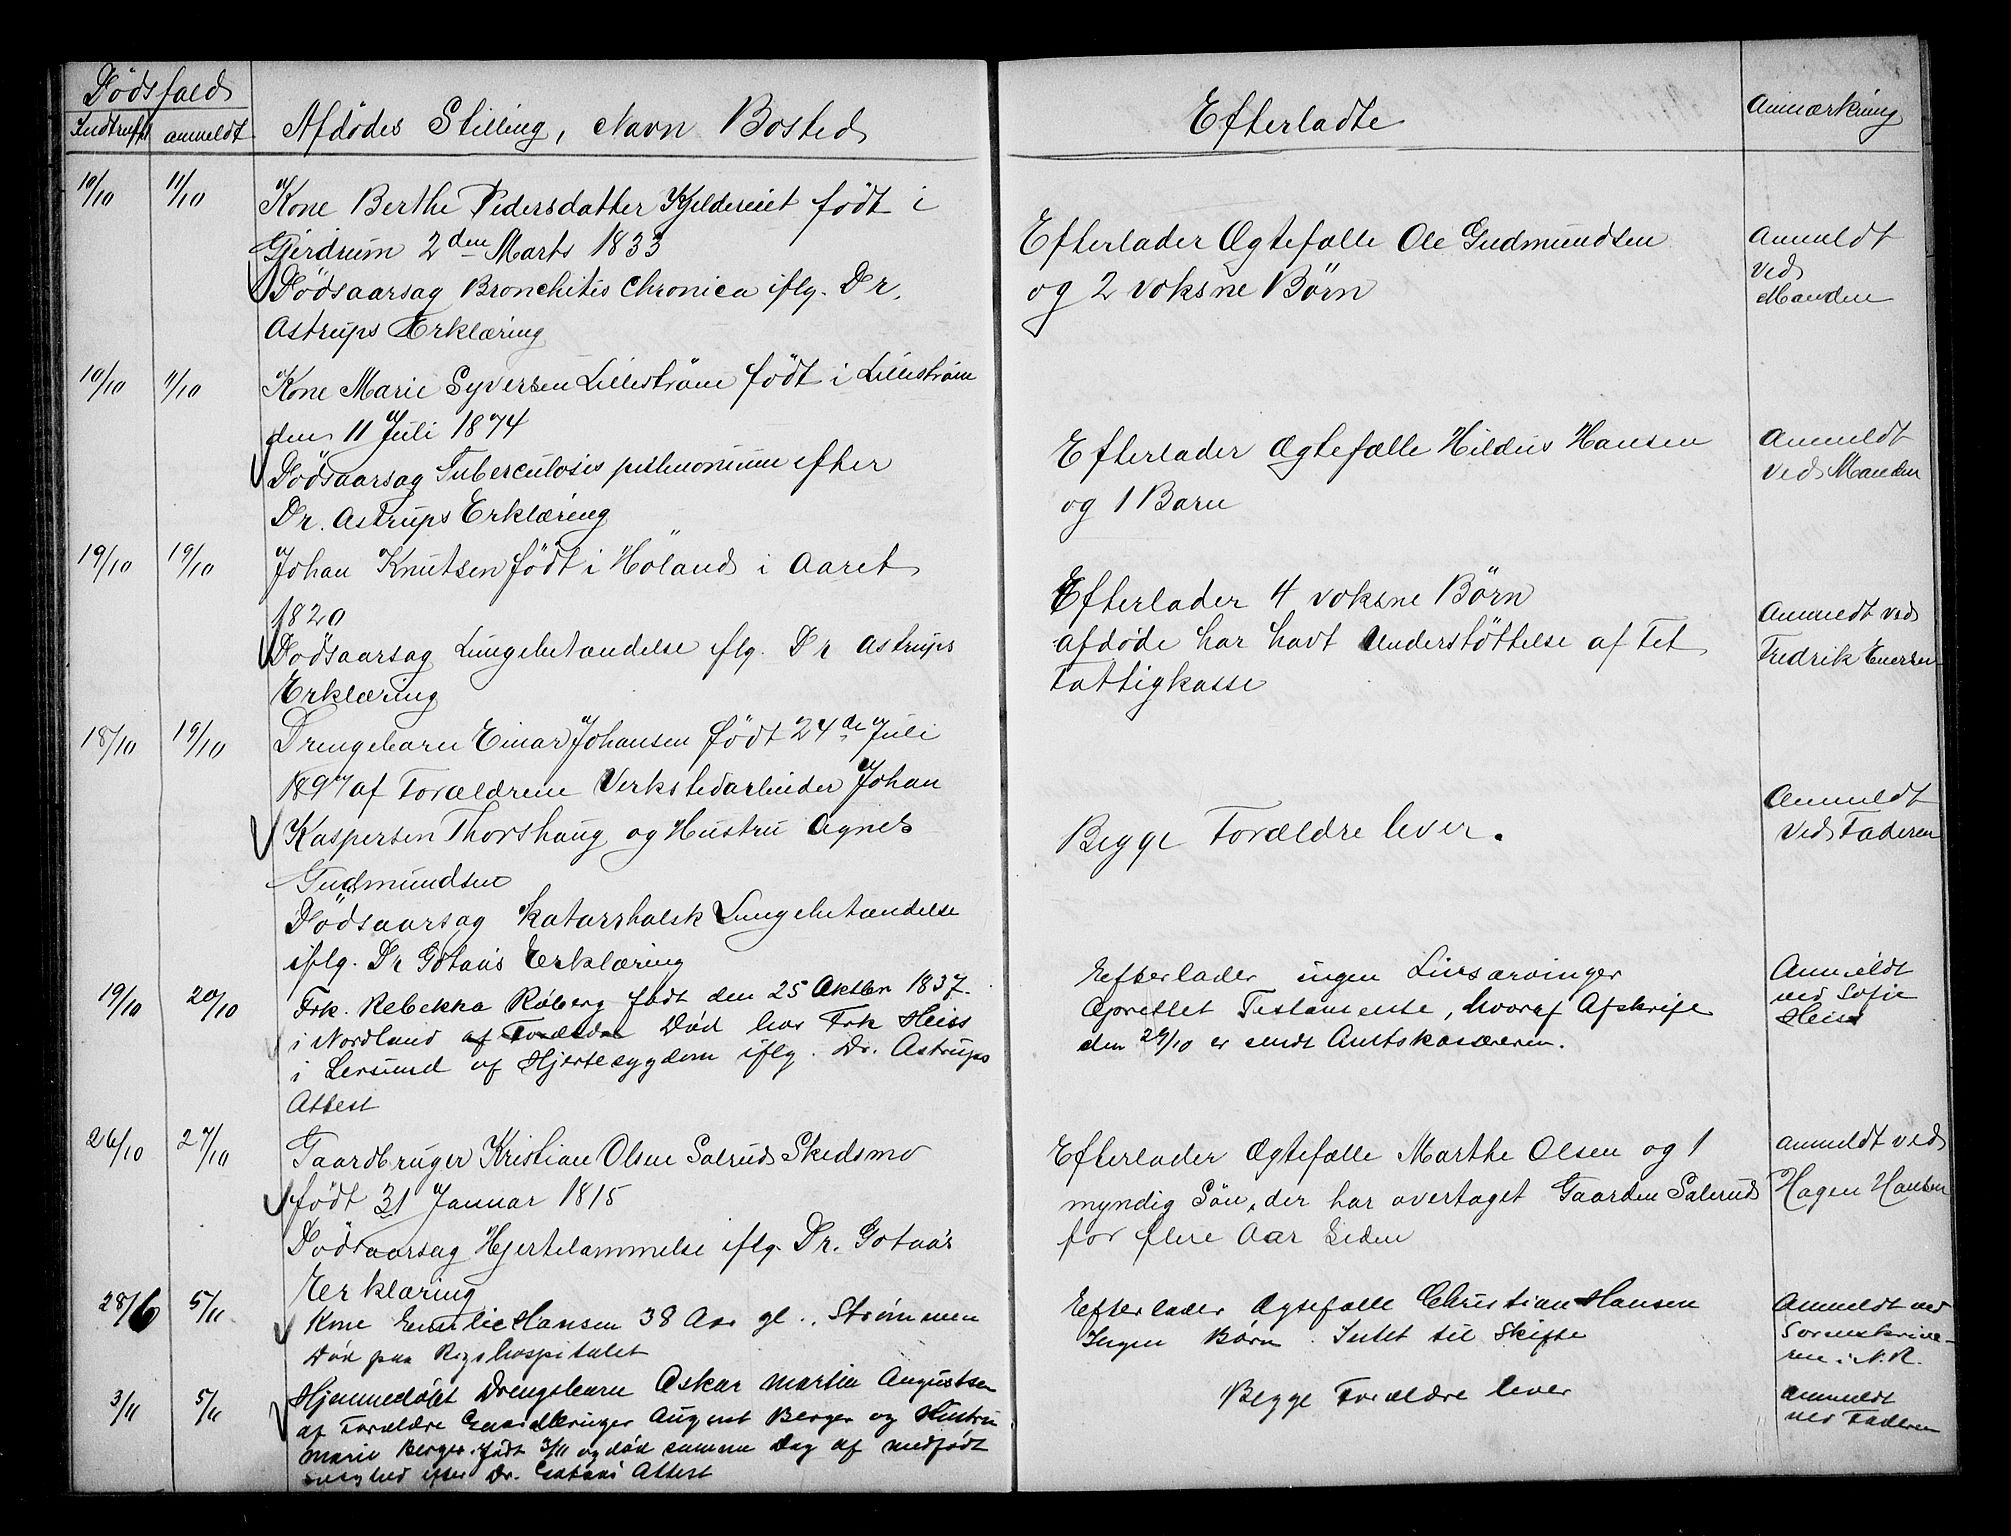 Dödsfald
Indtruffet anmeldt
Afdödes Stilling, Navn Bosted
Efterladte
Anmærkning
10/10 11/10
Kone Berthe Pedersdatter Kjeldereiet födt i
Gjerdrum 2den Marts 1833
Dödsaarsag Bronchitis Chronica iflg. Dr.
Astrups Erklæring
Efterlader Ægtefælle Ole Gudmundsen
og 2 voksne Börn
Anmeldt
ved
Manden
10/10 11/10
Kone Marie Syversen Lilleström födt i Lilleström
den 11 Juli 1874
Dödsaarsag Tuberculosis pulmonum efter
Dr. Astrups Erklæring
Efterlader Ægtefælle Hildus Hansen
og 1 Barn
Anmeldt
ved Manden
19/10 19/10
Johan Knutsen födt i Höland i Aaret
1820
Dödsaarsag Lungebetændelse iflg. Dr Astrups
Erklæring
Efterlader 4 voksne Börn
afdöde har havt Understöttelse af Fet
Fattigkasse
Anmeldt ved
Fredrik Enersen
18/10 19/10
Drengebarn Einar Johansen födt 24de Juli
1897 af Forældrene Verkstedarbeider Johan
Kaspersen Thorshaug og Hustru Agnes
Gudmundsen
Dödsaarsag Katarrhalsk Lungebetændelse
iflg. Dr Gotaas Erklæring
Begge Forældre lever.
Anmeldt
ved Faderen
19/10 20/10
Frk. Rebekka Röberg födt den 25 Oktbr 1837.
i Nordland af Forældre Död hos Frk Heiss
i Lersund af Hjertesygdom iflg. Dr. Astrups
Attest
Efterlader ingen Livsarvinger
Oprettet Testamente, hvoraf Afskrift
den 29/10 er sendt Amtskassereren.
Anmeldt
ved Sofie
Heiss
26/10 27/10
Gaardbruger Kristian Olsen Salerud Skedsmo
födt 31 Januar 1815
Dödsaarsag Hjertelammelse iflg. Dr. Gotaas
Erklæring
Efterlader Ægtefælle Marthe Olsen og 1
myndig Sön, der har overtaget Gaarden Salerud
for flere Aar siden
anmeldt ved
Hagen Hansen
28/6 5/11
Kone Emilie Hansen 38 Aar gl. Strömmen
Död paa Rigshospitalet
Efterlader Ægtefælle Christian Hansen
Ingen Börn. Intet til Skifte
Anmeldt ved
Sorenskrive-
ren i N.R.
3/11 5/11
Hjemmedöbt Drengebarn Oskar Martin Augustsen
af Forældre Gaardbruger August Berger og Hustru
Marie Berger. födt 3/11 og död samme Dag af medfödt
svaghed efter Dr. Gotaas Attest
Begge Forældre lever
Anmeldt
ved Faderen